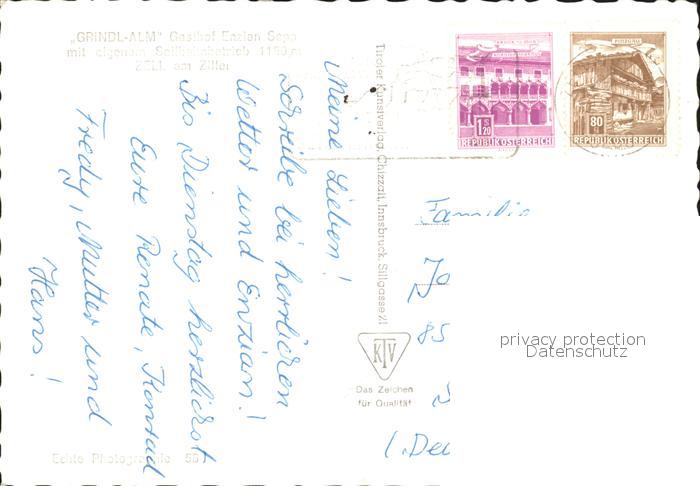 „GRINDL-ALM" Gasthof Enzian Sepp
mit eigenem Seilbahnbetrieb
ZELL am Ziller
Meine Lieben!
Schreibe bei herrlichem
Wetter und Enzian!
Bis Dienstag herzlichst
Eure Renate, Konrad
Fredy, Mutter und
Hans!
Echte Photographie
Tiroler Kunstverlag Chizzali, Innsbruck, Sillgasse 21
KTV
Das Zeichen
für Qualität
1 S 20
REPUBLIK ÖSTERREICH
80
REPUBLIK ÖSTERREICH
Familie
Jo
85
privacy protection
Datenschutz